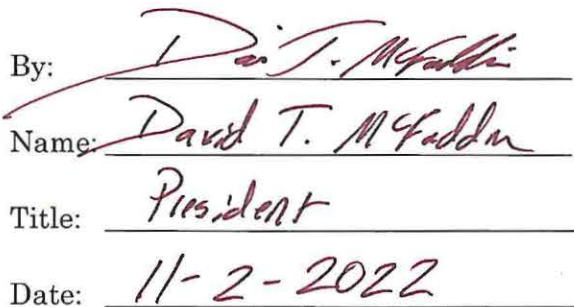 By: David T. McFaddin
Name: David T. McFaddin
Title: President
Date: 11-2-2022